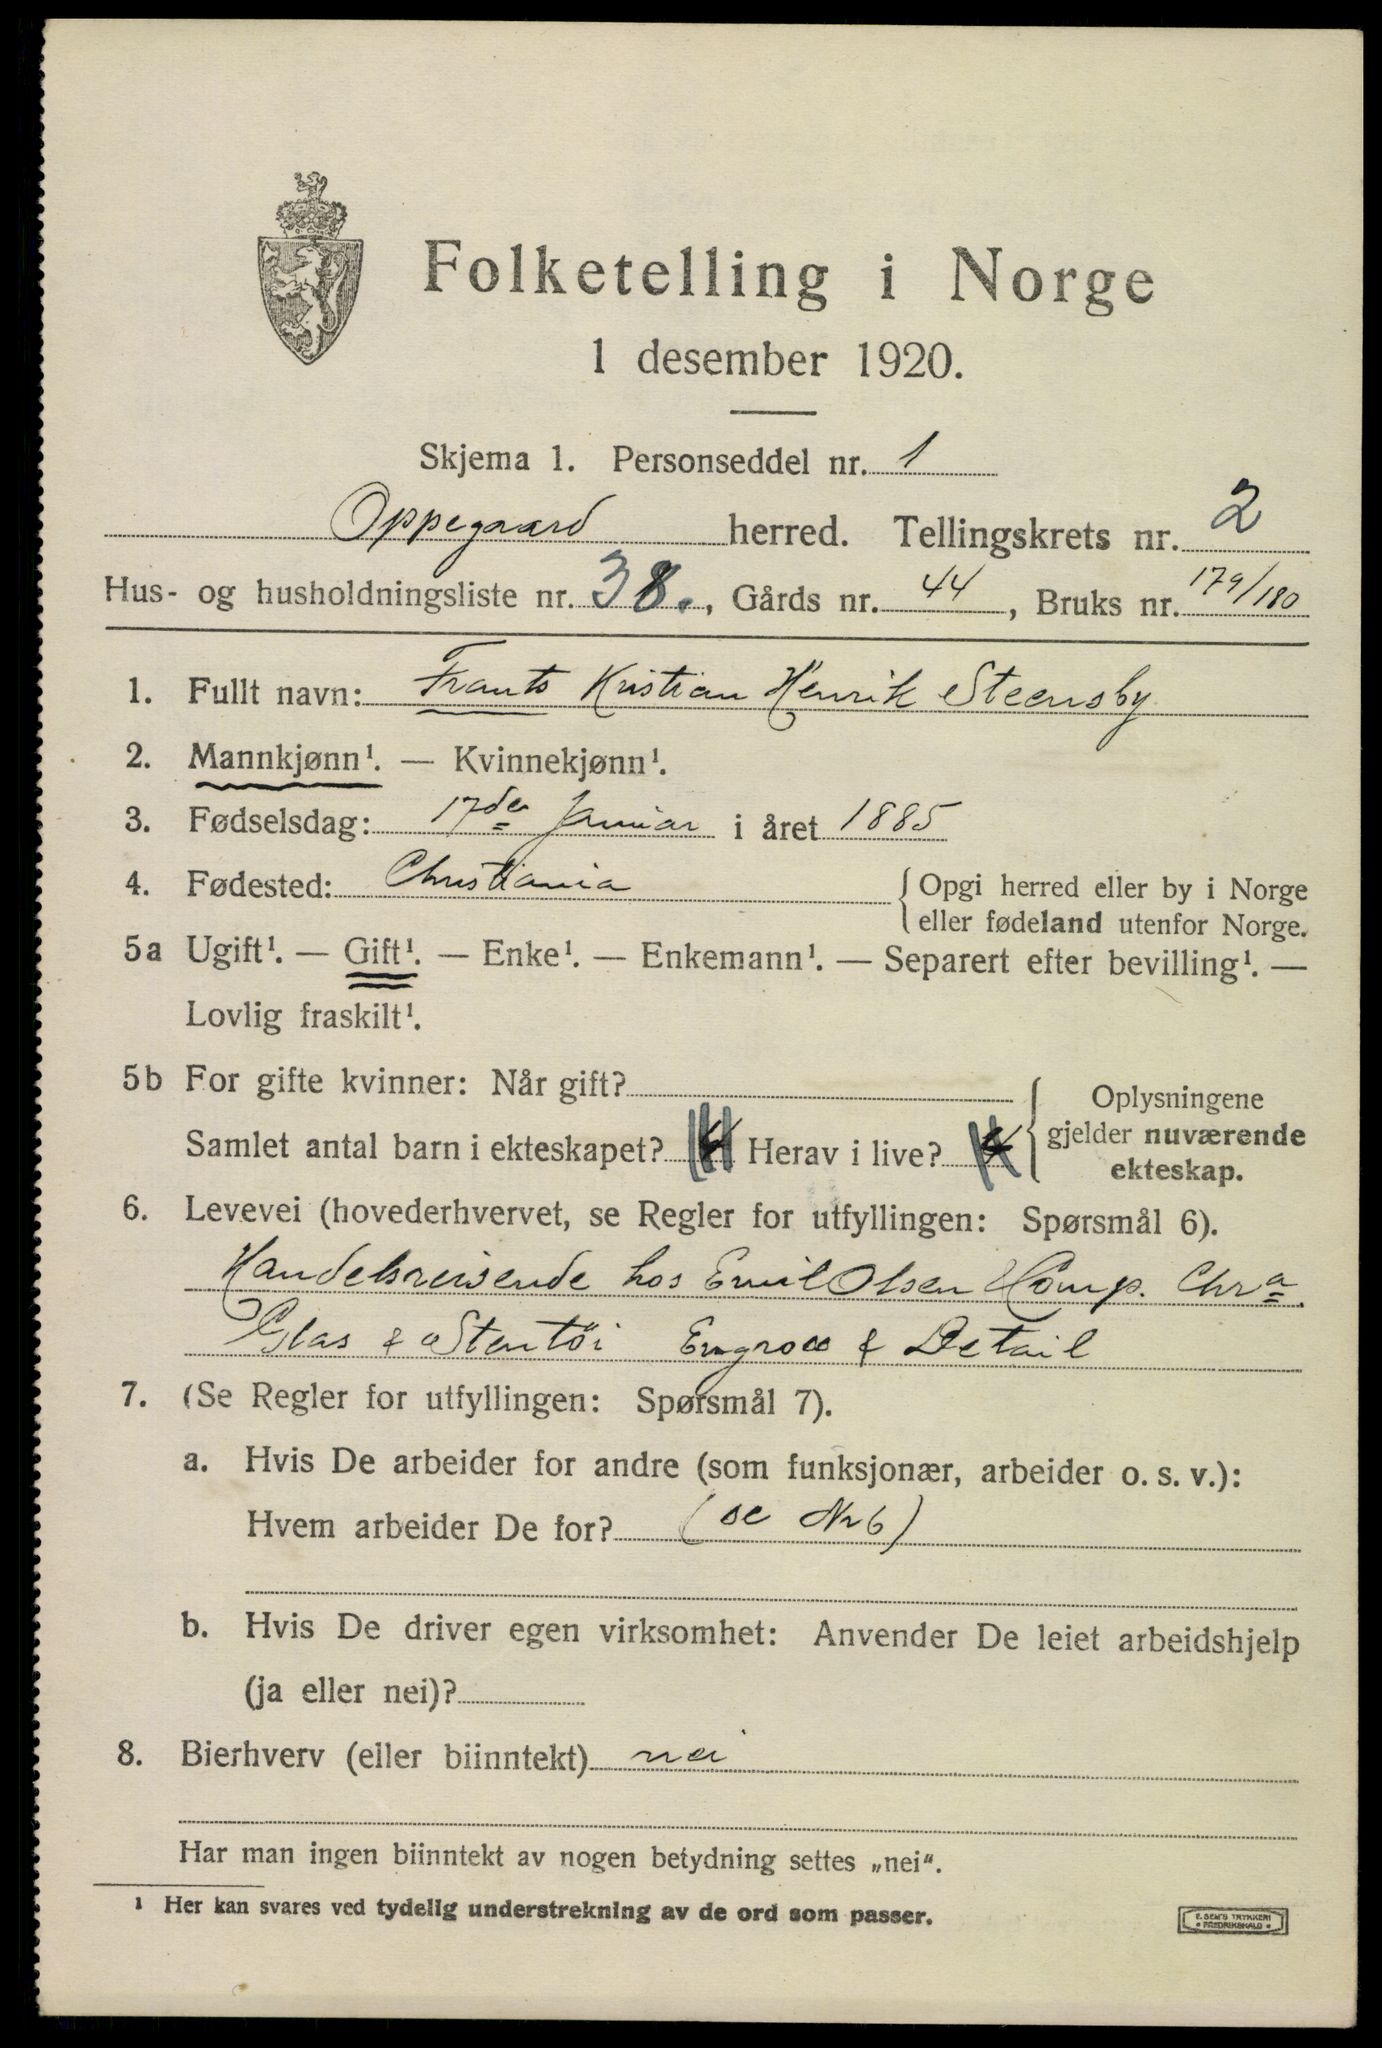 Folketelling i Norge
1 desember 1920.
Skjema 1. Personseddel nr. 1
Oppegaard herred. Tellingskrets nr. 2
Hus- og husholdningsliste nr. 38., Gårds nr. 44, Bruks nr. 179/180
1. Fullt navn: Frants Kristian Henrik Steensby
2. Mannkjønn¹. — Kvinnekjønn¹.
3. Fødselsdag: 17de Januar i året 1885
4. Fødested: Christiania {Opgi herred eller by i Norge
eller fødeland utenfor Norge.
5a Ugift¹. — Gift¹. — Enke¹. — Enkemann¹. — Separert efter bevilling¹. —
Lovlig fraskilt¹.
5b For gifte kvinner: Når gift?
Samlet antal barn i ekteskapet? 4 Herav i live? 4
{Oplysningene
gjelder nuværende
ekteskap.
6. Levevei (hovederhvervet, se Regler for utfyllingen: Spørsmål 6).
Handelsreisende hos Emil Olsen & Comp. Chra.
Glas & Stentöi Engros & Detail
7. (Se Regler for utfyllingen: Spørsmål 7).
a. Hvis De arbeider for andre (som funksjonær, arbeider o. s. v.):
Hvem arbeider De for? (se Nr 6)
b. Hvis De driver egen virksomhet: Anvender De leiet arbeidshjelp
(ja eller nei)?
8. Bierhverv (eller biinntekt) nei
Har man ingen biinntekt av nogen betydning settes „nei“.
¹ Her kan svares ved tydelig understrekning av de ord som passer.
E. SEM'S TRYKKERI
• FREDRIKSHALD •